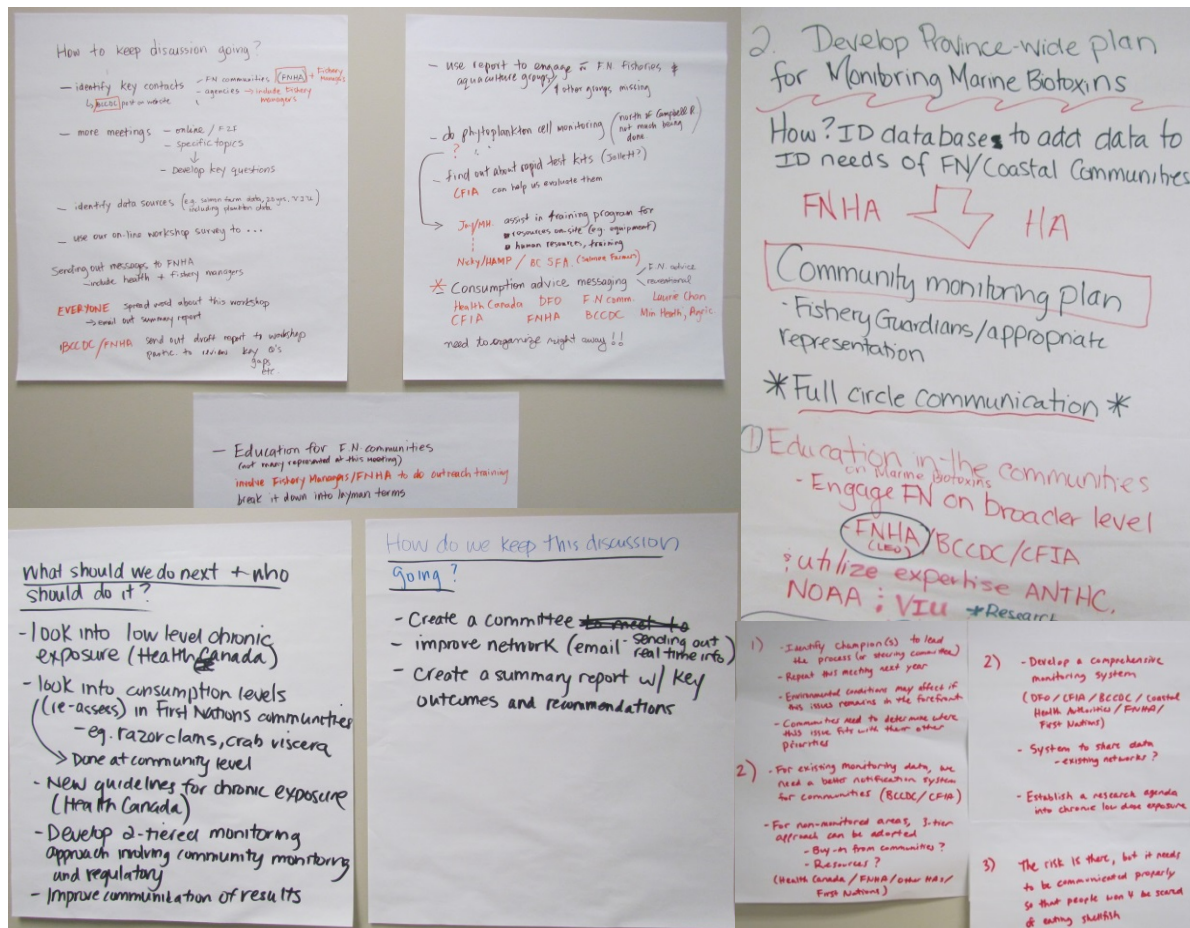 How to keep discussion going?
- identify key contacts - FN communities (FNHA) + Fishery managers
- agencies → include Fishery Managers
↳ BCCDC post on website
- more meetings - online / F2F
- specific topics
↓
- Develop key questions
- identify data sources (e.g. salmon farm data, 20 yrs,
including plankton data
- use our on-line workshop survey to ...
Sending out messages to FNHA
- include health + fishery managers
EVERYONE spread word about this workshop
→ email out summary report
BCCDC/FNHA send out draft report to workshop
partic. to review key Q's
gaps
etc.
- use report to engage F.N. fisheries &
aquaculture groups, & other groups missing
- do phytoplankton cell monitoring (north of Campbell R
not much being
done
?
- find out about rapid test kits (Jellett?)
CFIA can help us evaluate them
Joy/MH. assist in training program for
resources on-site (eg. equipment)
human resources, training
Nicky/HAMP / BC SFA. (Salmon Farmers)
* Consumption advice messaging F.N. advice
recreational
Health Canada DFO F.N comm. Laurie Chan
CFIA FNHA BCCDC Min Health, Angie
need to organize right away !!
- Education for F.N. communities
(not many represented at this meeting)
involve Fishery Managers/FNHA to do outreach training
break it down into layman terms
2. Develop Province-wide plan
for Monitoring Marine Biotoxins
How? ID databases to add data to
ID needs of FN/Coastal Communities
FNHA HA
Community monitoring plan
- Fishery Guardians/appropriate
representation
* Full circle communication *
① Education in the communities
on Marine Biotoxins
- Engage FN on broader level
- FNHA/BCCDC/CFIA
(LEO)
; utilize expertise ANTHC,
NOAA ; VIU *Research
What should we do next + who
should do it?
- look into low level chronic
exposure (Health Canada)
- look into consumption levels
(re-assess) in First Nations communities
- eg. razor clams, crab viscera
→ Done at community level
- New guidelines for chronic exposure
(Health Canada)
- Develop 2-tiered monitoring
approach involving community monitoring
and regulatory
- Improve communication of results
How do we keep this discussion
going?
- Create a committee to meet to
- improve network (email - sending out
real time info)
- Create a summary report w/ key
outcomes and recommendations
1) - Identify champion(s) to lead
the process (or steering committee)
- Repeat this meeting next year
- Environmental conditions may affect if
this issue remains in the forefront
- Communities need to determine where
this issue fits with their other
priorities
2) - For existing monitoring data, we
need a better notification system
for communities (BCCDC/CFIA)
- For non-monitored areas, 3-tier
approach can be adopted
- Buy-in from communities?
- Resources?
(Health Canada / FNHA / other HAs /
First Nations)
2) - Develop a comprehensive
monitoring system
(DFO / CFIA / BCCDC / Coastal
Health Authorities / FNHA /
First Nations)
- System to share data
- existing networks?
- Establish a research agenda
into chronic low dose exposure
3) The risk is there, but it needs
to be communicated properly
so that people won't be scared
of eating shellfish